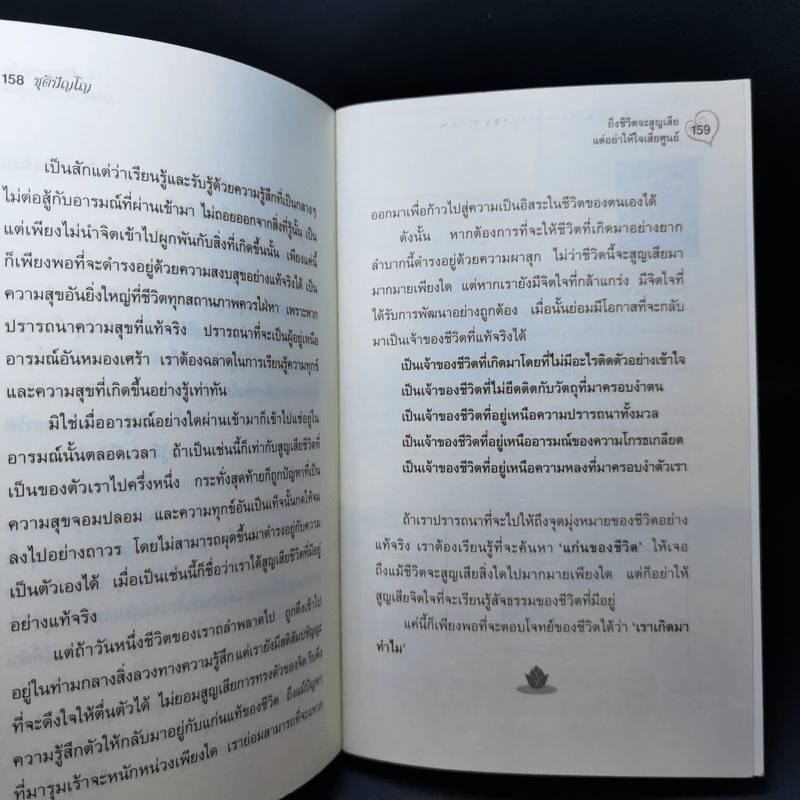 158 ชุติปัญโญ
เป็นสักแต่ว่าเรียนรู้และรับรู้ด้วยความรู้สึกที่เป็นกลางๆ
ไม่ต่อสู้กับอารมณ์ที่ผ่านเข้ามา ไม่ถอยออกจากสิ่งที่รู้นั้น เป็น
แต่เพียงไม่นำจิตเข้าไปผูกพันกับสิ่งที่เกิดขึ้นนั้น เพียงแค่นี้
ก็เพียงพอที่จะดำรงอยู่ด้วยความสงบสุขอย่างแท้จริงได้ เป็น
ความสุขอันยิ่งใหญ่ที่ชีวิตทุกสถานภาพควรใฝ่หา เพราะหาก
ปรารถนาความสุขที่แท้จริง ปรารถนาที่จะเป็นผู้อยู่เหนือ
อารมณ์อันหมองเศร้า เราต้องฉลาดในการเรียนรู้ความทุกข์
และความสุขที่เกิดขึ้นอย่างรู้เท่าทัน
มิใช่เมื่ออารมณ์อย่างใดผ่านเข้ามาก็เข้าไปแช่อยู่ใน
อารมณ์นั้นตลอดเวลา ถ้าเป็นเช่นนี้ก็เท่ากับสูญเสียชีวิตที่
เป็นของตัวเราไปครึ่งหนึ่ง กระทั่งสุดท้ายก็ถูกปัญหาที่เป็น
ความสุขจอมปลอม และความทุกข์อันเป็นเท็จนั้นกดให้จม
ลงไปอย่างถาวร โดยไม่สามารถผุดขึ้นมาดำรงอยู่กับความ
เป็นตัวเองได้ เมื่อเป็นเช่นนี้ก็ชื่อว่าเราได้สูญเสียชีวิตที่มีอยู่
อย่างแท้จริง
แต่ถ้าวันหนึ่งชีวิตของเราถลำพลาดไป ถูกดึงเข้าไป
อยู่ในท่ามกลางสิ่งลวงทางความรู้สึก แต่เรายังมีสติสัมปชัญญะ
ที่จะดึงใจให้ตื่นตัวได้ ไม่ยอมสูญเสียการทรงตัวของจิต รีบดึง
ความรู้สึกตัวให้กลับมาอยู่กับแก่นแท้ของชีวิต ถึงแม้ปัญหา
ที่มารุมเร้าจะหนักหน่วงเพียงใด เราย่อมสามารถที่จะแหวก
ถึงชีวิตจะสูญเสีย
แต่อย่าให้ใจเสียศูนย์ 159
ออกมาเพื่อก้าวไปสู่ความเป็นอิสระในชีวิตของตนเองได้
ดังนั้น หากต้องการที่จะให้ชีวิตที่เกิดมาอย่างยาก
ลำบากนี้ดำรงอยู่ด้วยความผาสุก ไม่ว่าชีวิตนี้จะสูญเสียมา
มากมายเพียงใด แต่หากเรายังมีจิตใจที่กล้าแกร่ง มีจิตใจที่
ได้รับการพัฒนาอย่างถูกต้อง เมื่อนั้นย่อมมีโอกาสที่จะกลับ
มาเป็นเจ้าของชีวิตที่แท้จริงได้
เป็นเจ้าของชีวิตที่เกิดมาโดยที่ไม่มีอะไรติดตัวอย่างเข้าใจ
เป็นเจ้าของชีวิตที่ไม่ยึดติดกับวัตถุที่มาครอบงำตน
เป็นเจ้าของชีวิตที่อยู่เหนือความปรารถนาทั้งมวล
เป็นเจ้าของชีวิตที่อยู่เหนืออารมณ์ของความโกรธเกลียด
เป็นเจ้าของชีวิตที่อยู่เหนือความหลงที่มาครอบงำตัวเรา
ถ้าเราปรารถนาที่จะไปให้ถึงจุดมุ่งหมายของชีวิตอย่าง
แท้จริง เราต้องเรียนรู้ที่จะค้นหา ‘แก่นของชีวิต’ ให้เจอ
ถึงแม้ชีวิตจะสูญเสียสิ่งใดไปมากมายเพียงใด แต่ก็อย่าให้
สูญเสียจิตใจที่จะเรียนรู้สัจธรรมของชีวิตที่มีอยู่
แค่นี้ก็เพียงพอที่จะตอบโจทย์ของชีวิตได้ว่า ‘เราเกิดมา
ทำไม’